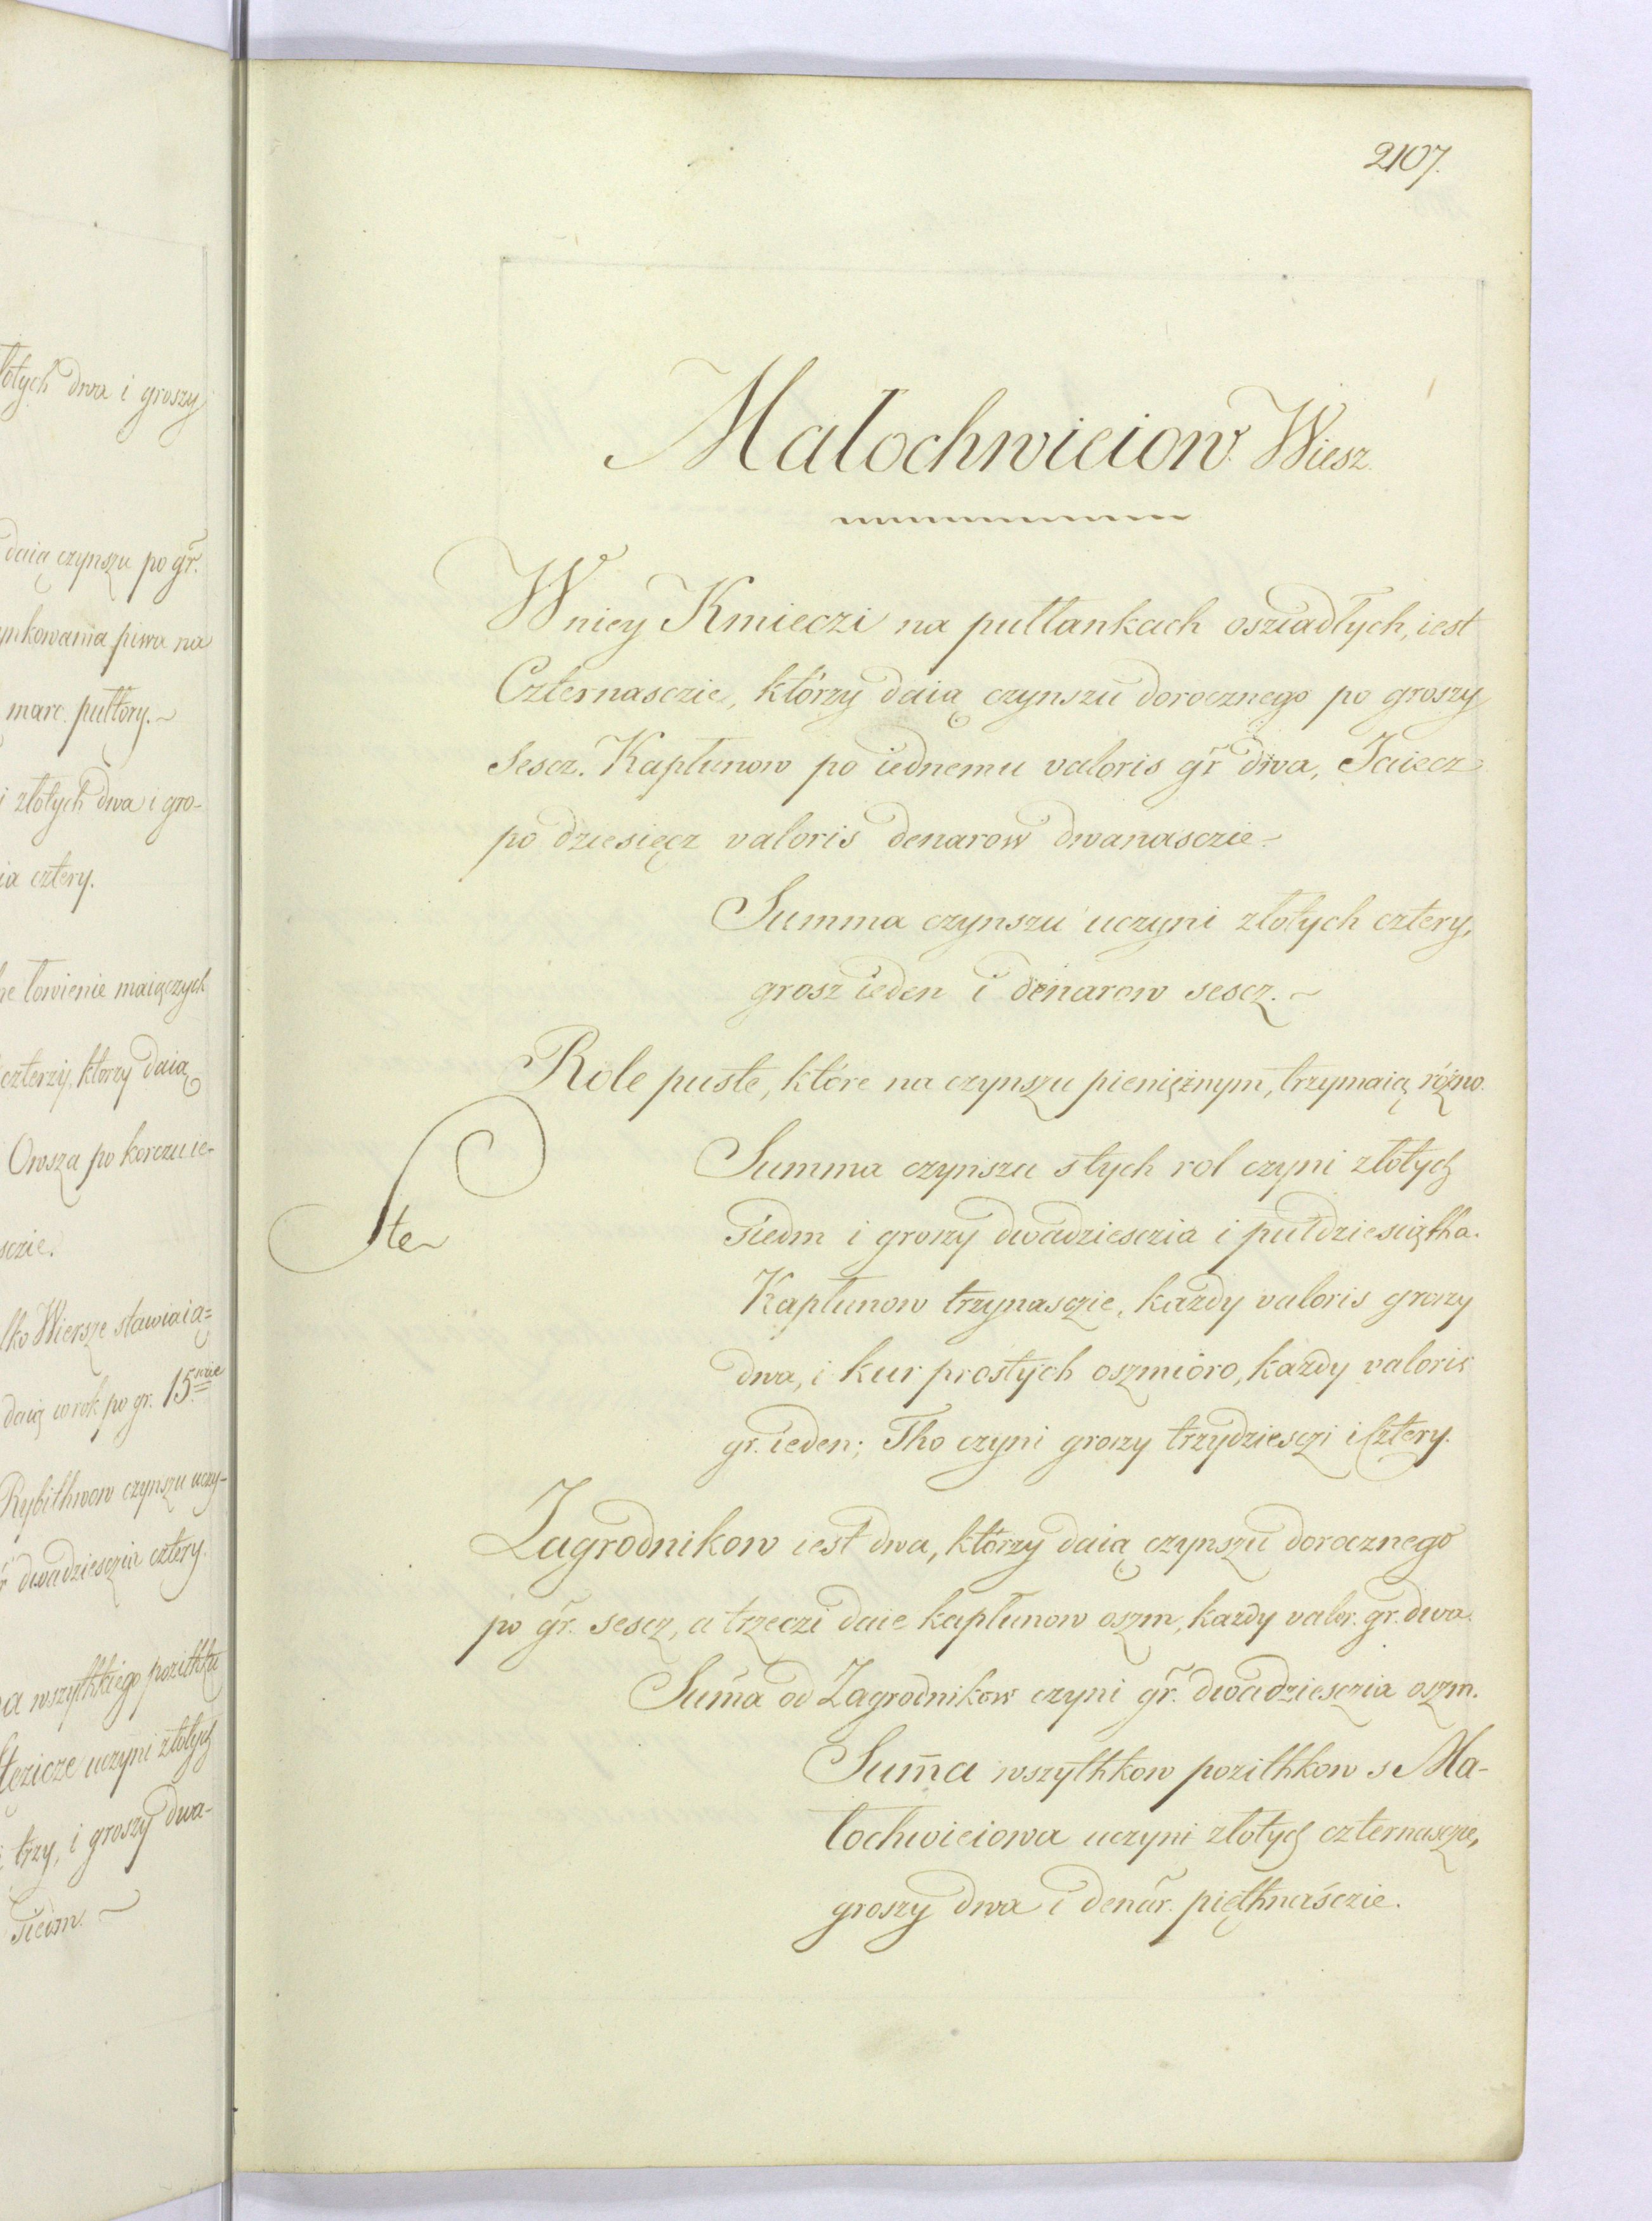 łotych dwa i groszy
daią czynszu po gr.
ynkowania piwa na
marc. pułtory.~
i złotych dwa i gro-
ia cztery.
łowienie maiączych
czterzy, ktorzy daią
Owsza po korczu ie-
sczie.
lko Wiersze stawiaią=
daią wrok po gr. 15.
Rybithwow czynszu uczy-
dwadziesczia cztery.
a wszythkiego pozithku
uczyni złotych
trzy, i groszy dwa-
siedm. ~
2107.
Małochwieiow Wiesz.
Wniey Kmieczi na pułłankach osziadłych, iest
Czternasczie, którzy daią czynszu dorocznego po groszy
Sescz. Kapłunow po iednemu valoris gr dwa, Jaiecz
po dziesięcz valoris denarow dwanasczie-
Summa czynszu uczyni złotych cztery,
grosz ieden i denarow sescz.~
Role puste, które na czynszu pieniężnym, trzymaią różno.
Summa czynszu stych rol czyni złotych
Ste
siedm i groszy dwadziesczia i pułdziesiątka.
Kapłunow trzynasczie, każdy valoris groszy
dwa, i kur prostych oszmioro, każdy valoris
gr. ieden; Tho czyni groszy trzydziesczi i Cztery.
Zagrodnikow iest dwa, którzy daią czynszu dorocznego
po gr. sescz, a trzeczi daie kapłunow oszm, kazdy valor. gr. dwa.
Sum̄a od Zagrodnikow czyni gr. dwadziesczia oszm.
Sum̄a wszythkow pozithkow s Ma-
łochwieiowa uczyni złotych czternasczie,
groszy dwa i denar. pięthnaśczie.